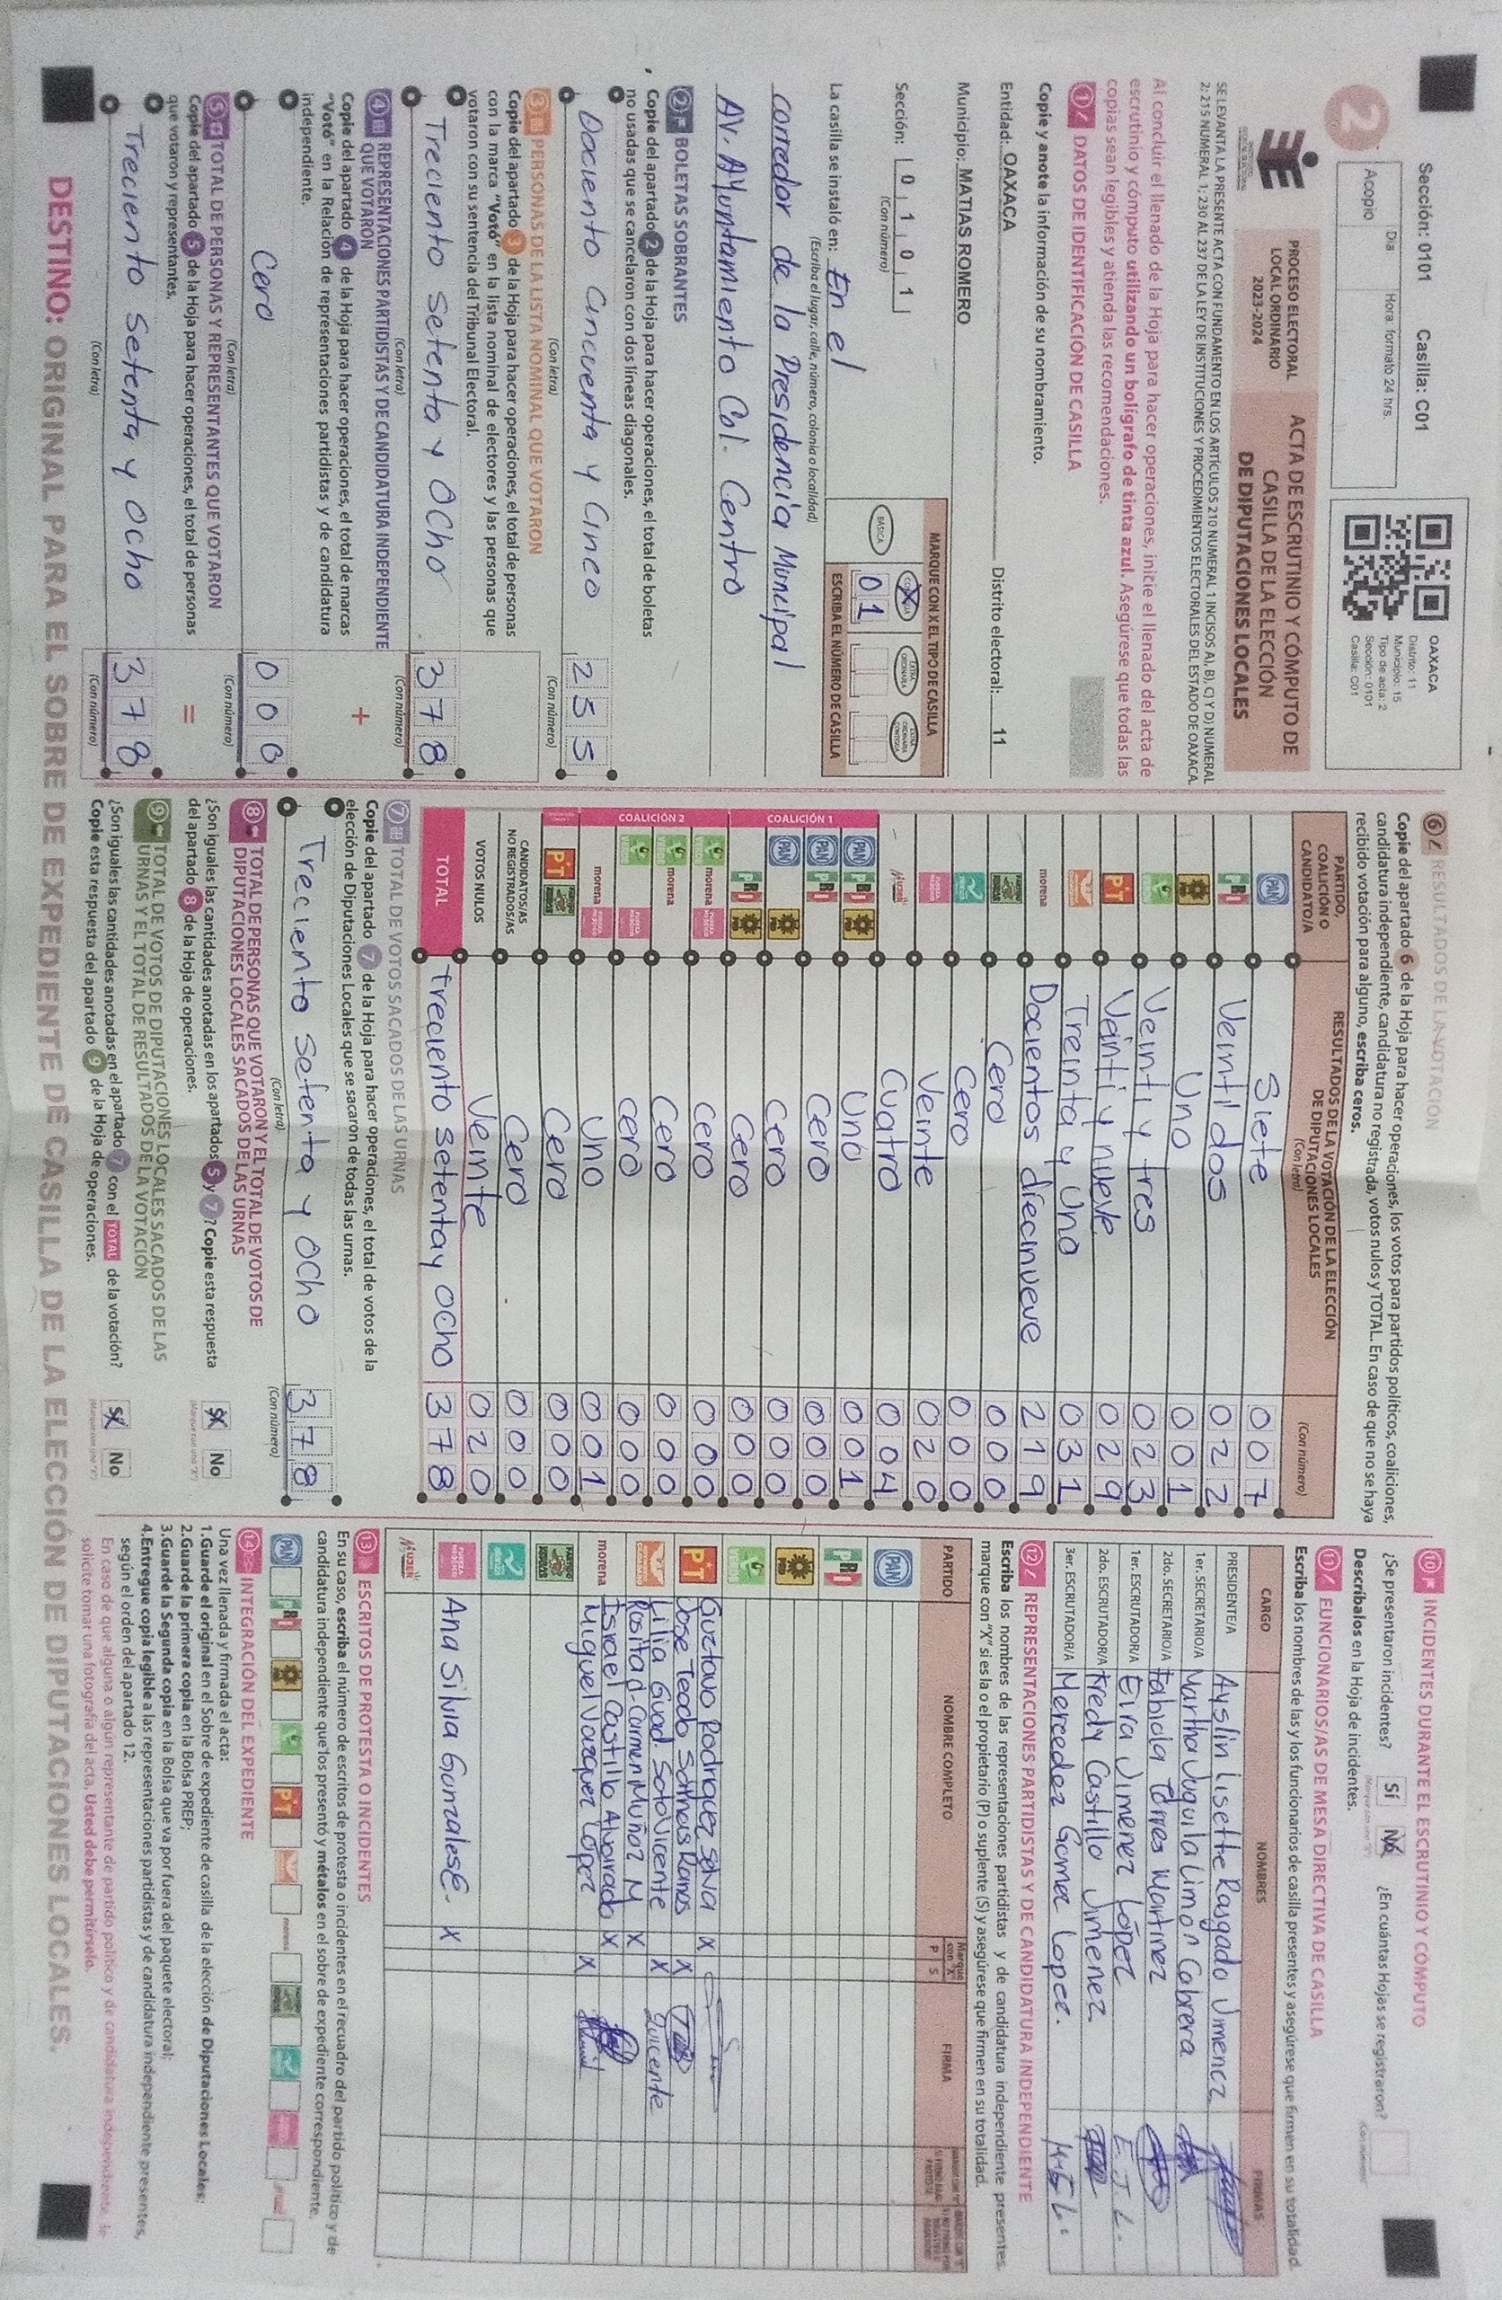 Sección: 0101 Casilla: C01
Día Hora: formato 24 hrs.
Acopio
2
OAXACA
Distrito: 11
Municipio: 15
Tipo de acta: 2
Sección: 0101
Casilla: C01
PROCESO ELECTORAL
LOCAL ORDINARIO
2023-2024
ACTA DE ESCRUTINIO Y CÓMPUTO DE
CASILLA DE LA ELECCIÓN
DE DIPUTACIONES LOCALES
SE LEVANTA LA PRESENTE ACTA CON FUNDAMENTO EN LOS ARTÍCULOS 210 NUMERAL 1 INCISOS A), B), C) Y D) NUMERAL
2; 215 NUMERAL 1; 230 AL 237 DE LA LEY DE INSTITUCIONES Y PROCEDIMIENTOS ELECTORALES DEL ESTADO DE OAXACA.
Al concluir el llenado de la Hoja para hacer operaciones, inicie el llenado del acta de
escrutinio y cómputo utilizando un bolígrafo de tinta azul. Asegúrese que todas las
copias sean legibles y atienda las recomendaciones.
1 DATOS DE IDENTIFICACIÓN DE CASILLA
Copie y anote la información de su nombramiento.
Entidad: OAXACA Distrito electoral: 11
Municipio: MATIAS ROMERO
Sección: 0 1 0 1
(Con número)
MARQUE CON X EL TIPO DE CASILLA
BÁSICA
EXTRA ORDINARIA
EXTRA ORDINARIA CONTIGUA
0 1
ESCRIBA EL NÚMERO DE CASILLA
La casilla se instaló en: En el
(Escriba el lugar, calle, número, colonia o localidad)
corredor de la Presidencia Municipal
AV. Ayuntamiento Col. Centro
2 BOLETAS SOBRANTES
Copie del apartado 2 de la Hoja para hacer operaciones, el total de boletas
no usadas que se cancelaron con dos líneas diagonales.
Dociento cincuenta y Cinco 2 5 5
(Con letra) (Con número)
3 PERSONAS DE LA LISTA NOMINAL QUE VOTARON
Copie del apartado 3 de la Hoja para hacer operaciones, el total de personas
con la marca "Votó" en la lista nominal de electores y las personas que
votaron con su sentencia del Tribunal Electoral.
Treciento Setenta y Ocho 3 7 8
(Con letra) (Con número)
4 REPRESENTACIONES PARTIDISTAS Y DE CANDIDATURA INDEPENDIENTE
QUE VOTARON
+
Copie del apartado 4 de la Hoja para hacer operaciones, el total de marcas
"Votó" en la Relación de representaciones partidistas y de candidatura
independiente.
Cero 0 0 0
(Con letra) (Con número)
5 TOTAL DE PERSONAS Y REPRESENTANTES QUE VOTARON
=
Copie del apartado 5 de la Hoja para hacer operaciones, el total de personas
que votaron y representantes.
Treciento Setenta y Ocho 3 7 8
(Con letra) (Con número)
6 RESULTADOS DE LA VOTACIÓN
Copie del apartado 6 de la Hoja para hacer operaciones, los votos para partidos políticos, coaliciones,
candidatura independiente, candidatura no registrada, votos nulos y TOTAL. En caso de que no se haya
recibido votación para alguno, escriba ceros.
PARTIDO,
COALICIÓN O
CANDIDATO/A
RESULTADOS DE LA VOTACIÓN DE LA ELECCIÓN
DE DIPUTACIONES LOCALES
(Con letra) (Con número)
PAN Siete 0 0 7
PRI Veintidos 0 2 2
PRD Uno 0 0 1
VERDE Veinti y tres 0 2 3
PT Veinti y nueve 0 2 9
Treinta y Uno 0 3 1
morena Docientos diecinueve 2 1 9
Cero 0 0 0
Cero 0 0 0
Veinte 0 2 0
Cuatro 0 0 4
COALICIÓN 1
PAN PRI PRD Uno 0 0 1
PAN PRI Cero 0 0 0
PAN PRD Cero 0 0 0
PRI PRD Cero 0 0 0
COALICIÓN 2
VERDE morena Cero 0 0 0
VERDE morena Cero 0 0 0
VERDE Cero 0 0 0
morena Uno 0 0 1
PT Cero 0 0 0
CANDIDATOS/AS
NO REGISTRADOS/AS Cero 0 0 0
VOTOS NULOS Veinte 0 2 0
TOTAL treciento setenta y ocho 3 7 8
7 TOTAL DE VOTOS SACADOS DE LAS URNAS
Copie del apartado 7 de la Hoja para hacer operaciones, el total de votos de la
elección de Diputaciones Locales que se sacaron de todas las urnas.
Treciento Setenta y Ocho 3 7 8
(Con letra) (Con número)
8 TOTAL DE PERSONAS QUE VOTARON Y EL TOTAL DE VOTOS DE
DIPUTACIONES LOCALES SACADOS DE LAS URNAS
¿Son iguales las cantidades anotadas en los apartados 5 y 7? Copie esta respuesta
del apartado 8 de la Hoja de operaciones.
Sí No
9 TOTAL DE VOTOS DE DIPUTACIONES LOCALES SACADOS DE LAS
URNAS Y EL TOTAL DE RESULTADOS DE LA VOTACIÓN
¿Son iguales las cantidades anotadas en el apartado 7 con el TOTAL de la votación?
Copie esta respuesta del apartado 9 de la Hoja de operaciones.
Sí No
10 INCIDENTES DURANTE EL ESCRUTINIO Y CÓMPUTO
¿Se presentaron incidentes? Sí No ¿En cuántas Hojas se registraron?
(Con número)
Descríbalos en la Hoja de incidentes.
11 FUNCIONARIOS/AS DE MESA DIRECTIVA DE CASILLA
Escriba los nombres de las y los funcionarios de casilla presentes y asegúrese que firmen en su totalidad.
CARGO NOMBRES FIRMAS
PRESIDENTE/A Ayslin Lisette Rasgado Jimenez
1er. SECRETARIO/A Martha Juquila Limón Cabrera
2do. SECRETARIO/A Fabiola Torres Martinez
1er. ESCRUTADOR/A Elva Jimenez López E. J. L.
2do. ESCRUTADOR/A Fredy Castillo Jimenez
3er. ESCRUTADOR/A Mercedez Gomez Lopez. M.G.L.
12 REPRESENTACIONES PARTIDISTAS Y DE CANDIDATURA INDEPENDIENTE
Escriba los nombres de las representaciones partidistas y de candidatura independiente presentes,
marque con "X" si es la o el propietario (P) o suplente (S) y asegúrese que firmen en su totalidad.
PARTIDO NOMBRE COMPLETO Marque con "X" P S FIRMA
PAN
PRI
PRD
VERDE Gustavo Rodriguez Selva X
PT Jose Teodo Santos Ramos X
Lilia Guad. Soto Vicente X Vicente
Rosita d. Carmen Muñoz M X
morena Israel Castillo Alvarado X
Miguel Vazquez López X
Ana Silvia Gonzalese. X
13 ESCRITOS DE PROTESTA O INCIDENTES
En su caso, escriba el número de escritos de protesta o incidentes en el recuadro del partido político y de
candidatura independiente que los presentó y métalos en el sobre de expediente correspondiente.
PAN PRI PRD VERDE PT morena
14 INTEGRACIÓN DEL EXPEDIENTE
Una vez llenada y firmada el acta:
1.Guarde el original en el Sobre de expediente de casilla de la elección de Diputaciones Locales;
2.Guarde la primera copia en la Bolsa PREP;
3.Guarde la Segunda copia en la Bolsa que va por fuera del paquete electoral;
4.Entregue copia legible a las representaciones partidistas y de candidatura independiente presentes,
según el orden del apartado 12.
En caso de que alguna o algún representante de partido político y de candidatura independiente, le
solicite tomar una fotografía del acta, Usted debe permitírselo.
DESTINO: ORIGINAL PARA EL SOBRE DE EXPEDIENTE DE CASILLA DE LA ELECCIÓN DE DIPUTACIONES LOCALES.